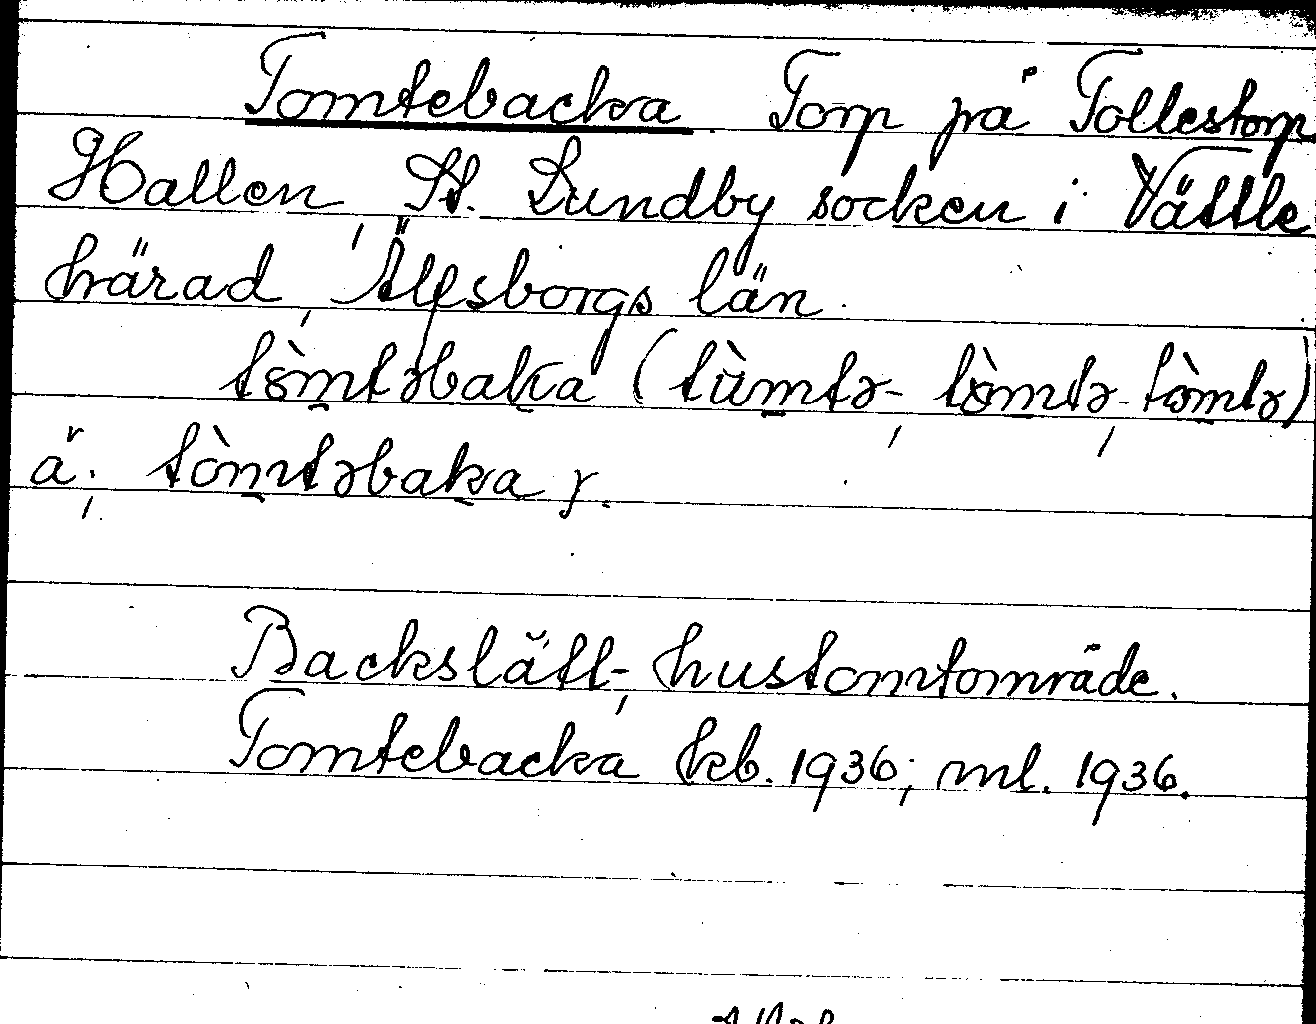 Tomtebacka Torp på Tollestorp
Hallen, St. Lundby socken i Vättle
härad, Älfsborgs län.
tòmtəbaka (tùmtə-, tòmtə-, tòmtə)
ä.; tòmtəbaka y.
Backslätt-, hustomtområde.
Tomtebacka kb. 1936; ml. 1936.